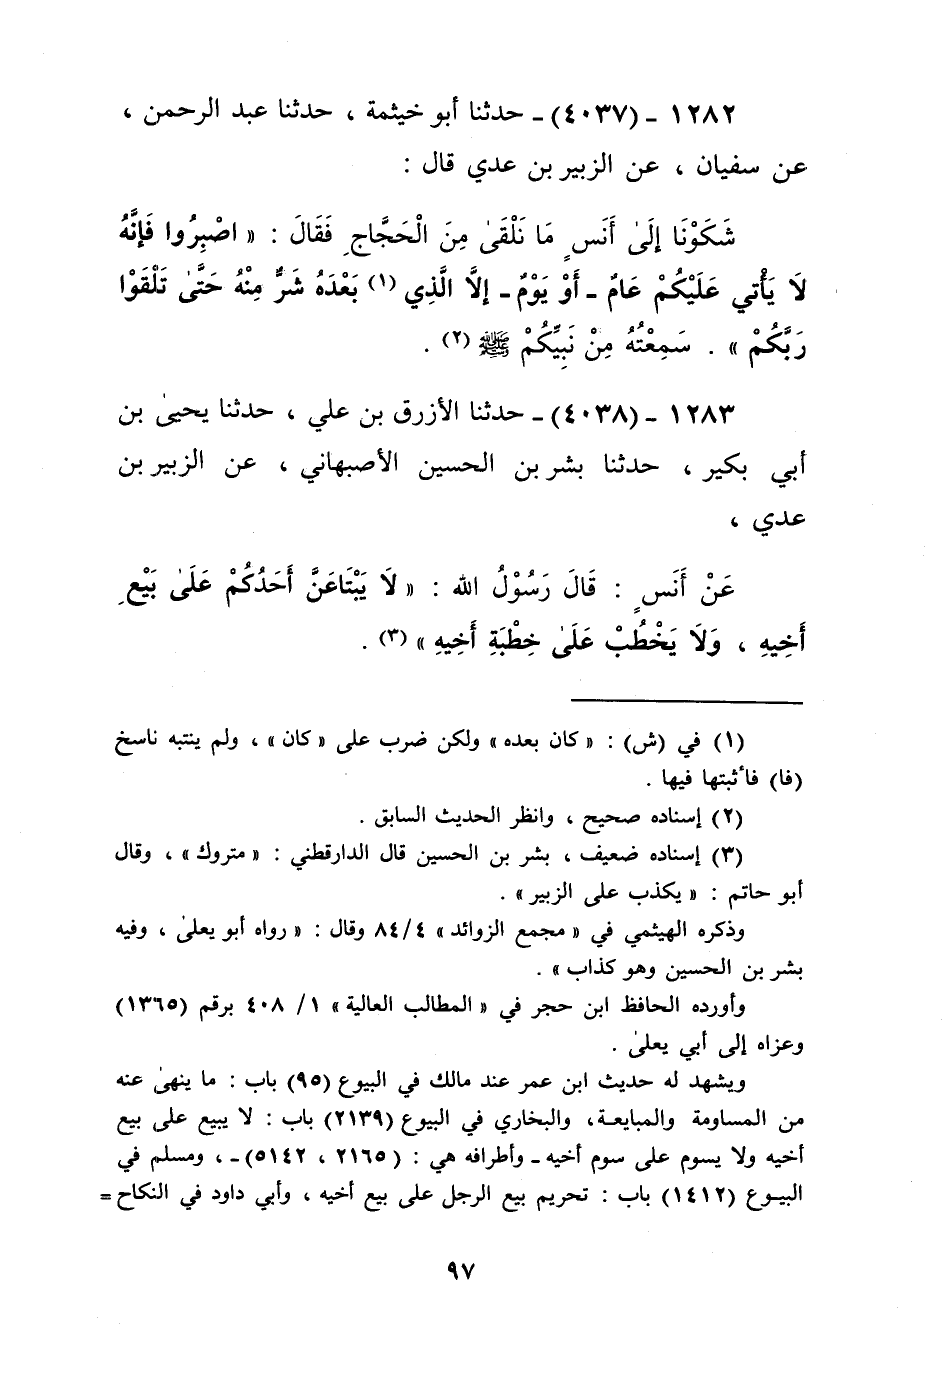 ١٢٨٢ - (٤٠٣٧) - حدثنا أبو خيثمة ، حدثنا عبد الرحمن ،
عن سفيان ، عن الزبير بن عدي قال :
شَكَوْنَا إِلَىٰ أَنَسٍ مَا نَلْقَىٰ مِنَ الْحَجَّاجِ فَقَالَ : « اصْبِرُوا فَإِنَّهُ
لَا يَأْتي عَلَيْكُمْ عَامٌ - أَوْ يَوْمٌ - إلَّا الَّذِي (١) بَعْدَهُ شَرٌّ مِنْهُ حَتَّىٰ تَلْقَوْا
رَبَّكُمْ » . سَمِعْتُهُ مِنْ نَبِيِّكُمْ ﷺ (٢) .
١٢٨٣ - (٤٠٣٨) - حدثنا الأزرق بن علي ، حدثنا يحيىٰ بن
أبي بكير ، حدثنا بشر بن الحسين الأصبهاني ، عن الزبير بن
عدي ،
عَنْ أَنَسٍ : قَالَ رَسُوْلُ الله : « لَا يَبْتَاعَنَّ أَحَدُكُمْ عَلَىٰ بَيْعِ
أَخِيهِ ، وَلَا يَخْطُبْ عَلَىٰ خِطْبَةِ أَخِيهِ » (٣) .
(١) في (ش) : « كان بعده » ولكن ضرب على « كان » ، ولم ينتبه ناسخ
(فا) فأثبتها فيها .
(٢) إسناده صحيح ، وانظر الحديث السابق .
(٣) إسناده ضعيف ، بشر بن الحسين قال الدارقطني : « متروك » ، وقال
أبو حاتم : « يكذب على الزبير » .
وذكره الهيثمي في « مجمع الزوائد » ٨٤/٤ وقال : « رواه أبو يعلىٰ ، وفيه
بشر بن الحسين وهو كذاب » .
وأورده الحافظ ابن حجر في « المطالب العالية » ١/ ٤٠٨ برقم (١٣٦٥)
وعزاه إلى أبي يعلىٰ .
ويشهد له حديث ابن عمر عند مالك في البيوع (٩٥) باب : ما ينهىٰ عنه
من المساومة والمبايعة، والبخاري في البيوع (٢١٣٩) باب : لا يبيع على بيع
أخيه ولا يسوم على سوم أخيه - وأطرافه هي : ( ٢١٦٥ ، ٥١٤٢) - ، ومسلم في
البيوع (١٤١٢) باب : تحريم بيع الرجل على بيع أخيه ، وأبي داود في النكاح =
٩٧